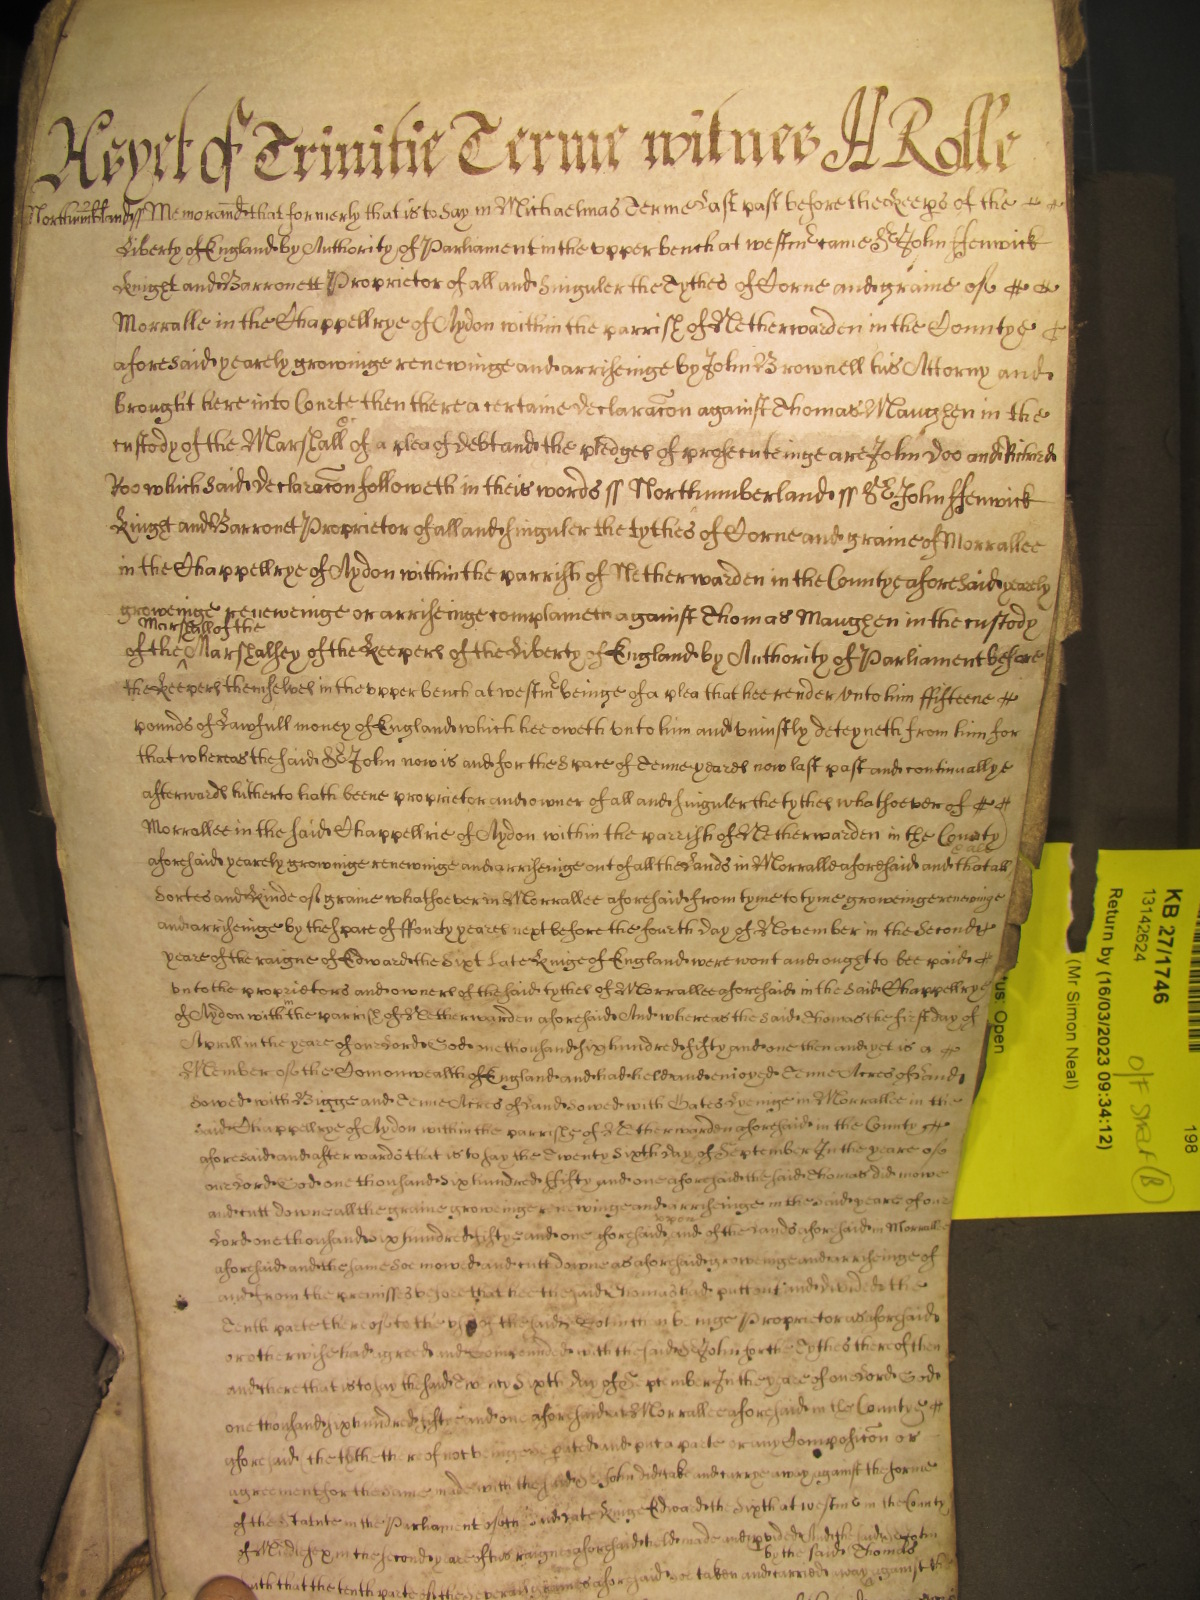 As yet of Trinitie Terme witnes H Rolle
Northumberland ss Memorand that formerly that is to say in Michaelmas Terme Last past before the Keeps of the
Liberty of England by Authority of Parliament in the upper bench at westm came Sr John ffenwick
Knight and Barronett Proprietor of all and Singuler the Tythes of Corne and graine of
Morralle in the Chappellrye of Aydon within the parrish of Netherwarden in the Countye
aforesaid yearely growinge renewinge and arriseinge by John Brownell his Attorny and
brought here into Courte then there a certaine declaracon against Thomas Maughen in the
custody of the Marshall &c of a plea of debt and the pledges of prosecuteinge are John Doo and Richard
Roo which said declaracon followeth in theis words ss Northumberland ss Sr John ffenwick
Knight and Barronet Proprietor of all and singuler the tythes of Corne and graine of Morrallee
in the Chappellrye of Aydon within the parrish of Netherwarden in the Countye aforesaid yearely
groweinge reneweinge or arriseinge complaineth against Thomas Maughen in the custody
Marshall of the
of the Marshalsey of the Keepers of the Liberty of England by Authority of Parliament before
the Keepers themselves in the upper bench at westm beinge of a plea that hee render unto him ffifteene
pounds of Lawfull money of England which hee oweth unto him and uniustly deteyneth from him for
that whereas the said Sr John now is and for the space of Tenne yeares now last past and continuallye
afterwards hitherto hath beene proprietor and owner of all and singuler the tythes whatsoever of
Morrallee in the said Chappellrie of Aydon within the parrish of Netherwarden in the County
aforesaid yearely growinge renewinge and arriseinge out of all the Lands in Morralle aforesaid and that all
Sortes and Kinde of graine whatsoever in Morrallee aforesaid from tyme to tyme groweinge renewinge
and arriseinge by the space of ffourty yeares next before the fourth day of November in the Second
yeare of the raigne of Edward the Sixt Late Kinge of England were wont and ought to bee paid
unto the proprietors and owners of the said tythes of Morrallee aforesaid in the said Chappellrye
of Aydon with in the parrish of Netherwarden aforesaid And whereas the said Thomas the first day of
Aprill in the yeare of our Lord God one thousand six hundred fifty and one then and yet is a
Member of the Comonwealth of England and had held and enioyed Tenne Acres of Land
Sowed with Bigge and Tenne Acres of Land Sowed with Oates Lyeinge in Morrallee in the
said Chappellrye of Aydon within the parrish of Netherwarden aforesaid in the County
aforesaid and afterwards that is to say the Twenty Sixth day of September In the yeare of
our Lord God one thousand six hundred ffifty and one aforesaid the said Thomas did mowe
and cutt downe all the graine groweinge renewinge and arriseinge in the said yeare of our
Lord one thousand six hundred fiftye and one aforesaid upon and of the Lands aforesaid in Morralle
aforesaid and the same soe mowed and cutt downe as aforesaid groweinge and arriseinge of
and from the premisses before that hee the said Thomas had putt out and divided the
Tenth parte thereof to the use of the said Sr John then beinge Proprietor as aforesaid
or otherwise had agreed and Compounded with the said Sr John for the Tythes thereof then
and there that is to say the said Twenty Sixth day of September In the yeare of our Lord God
one thousand six hundred fiftye and one aforesaid at Morrallee aforesaid in the Countye
aforesaid the tythe thereof not being seperated and put a parte or any Composicon or
agreement for the same made with the said Sr John did take and carrye away against the forme
of the Statute in the Parliament of the said Late Kinge Edward the Sixth at westm in the County
of Middlesex in the second yeare of his raigne aforesaid held made and provided And the said Sr John
by the said Thomas
saith that the tenth parte of the severall graines aforesaid soe taken and carried away against
KB 27/1746
13142624
Return by (16/03/2023 09:34:12)
(Mr Simon Neal)
us: Open
198